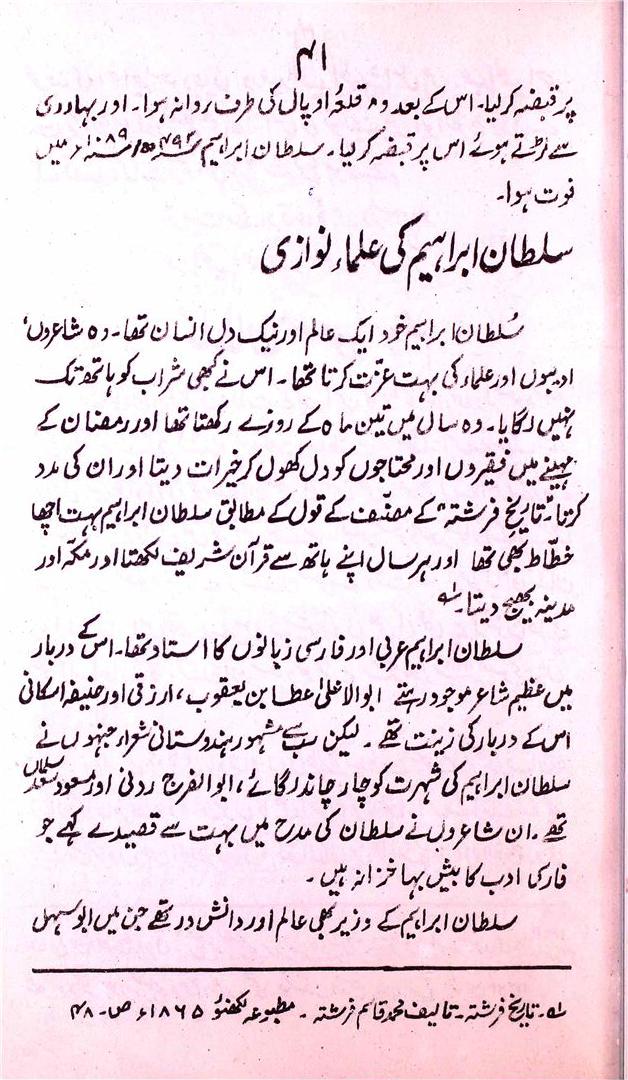 ۴۱
پر قبضہ کر لیا۔ اس کے بعد وہ قلعہ اوپال کی طرف روانہ ہوا۔ اور بہادری
سے لڑتے ہوئے اس پر قبضہ کر لیا۔ سلطان ابراہیم ۴۹۲ھ/۱۰۸۹ء میں
فوت ہوا۔
سلطان ابراہیم کی علماء نوازی
سُلطان ابراہیم خود ایک عالم اور نیک دل انسان تھا۔ وہ شاعروں،
ادیبوں اور علماء کی بہت عزّت کرتا تھا۔ اس نے کبھی شراب کو ہاتھ تک
نہیں لگایا۔ وہ سال میں تین ماہ کے روزے رکھتا تھا اور رمضان کے
مہینے میں فقیروں اور محتاجوں کو دل کھول کر خیرات دیتا اور ان کی مدد
کرتا۔ "تاریخ فرشتہ" کے مصنّف کے قول کے مطابق سلطان ابراہیم بہت اچھا
خطّاط بھی تھا اور ہر سال اپنے ہاتھ سے قرآن شریف لکھتا اور مکّہ اور
مدینہ بھیج دیتا۔ ؎۱
سلطان ابراہیم عربی اور فارسی زبانوں کا استاد تھا۔ اس کے دربار
میں عظیم شاعر موجود رہتے ابوالاعلیٰ عطا بن یعقوب، ارزقی اور حنیفہ اسکانی
اس کے دربار کی زینت تھے۔ لیکن سب سے مشہور ہندوستانی شعراء جنہوں نے
سلطان ابراہیم کی شہرت کو چار چاند لگائے، ابوالفرج رونی اور مسعود سعد سلمان
تھے۔ ان شاعروں نے سلطان کی مدح میں بہت سے قصیدے لکھے جو
فارسی ادب کا بیش بہا خزانہ ہیں۔
سلطان ابراہیم کے وزیر بھی عالم اور دانش ور تھے جن میں ابو سہل
؎۱۔ تاریخ فرشتہ۔ تالیف محمد قاسم فرشتہ۔ مطبوعہ لکھنؤ ۱۸۶۵ء ص۔ ۴۸